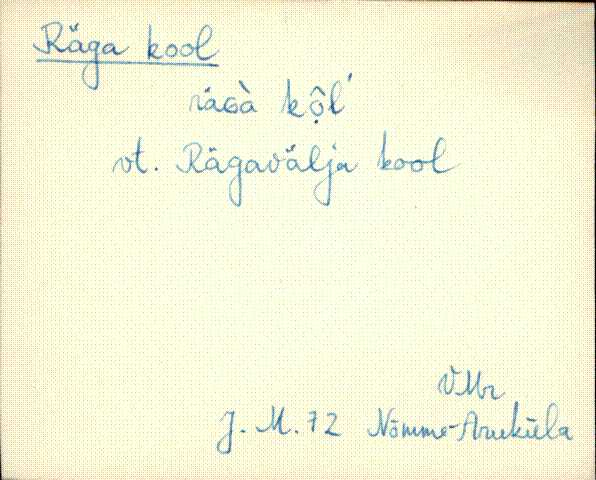 Räga kool
räɢà kọ̄l'
vt. Rägavälja kool
VMr
J. M. 72 Nõmme-Aruküla